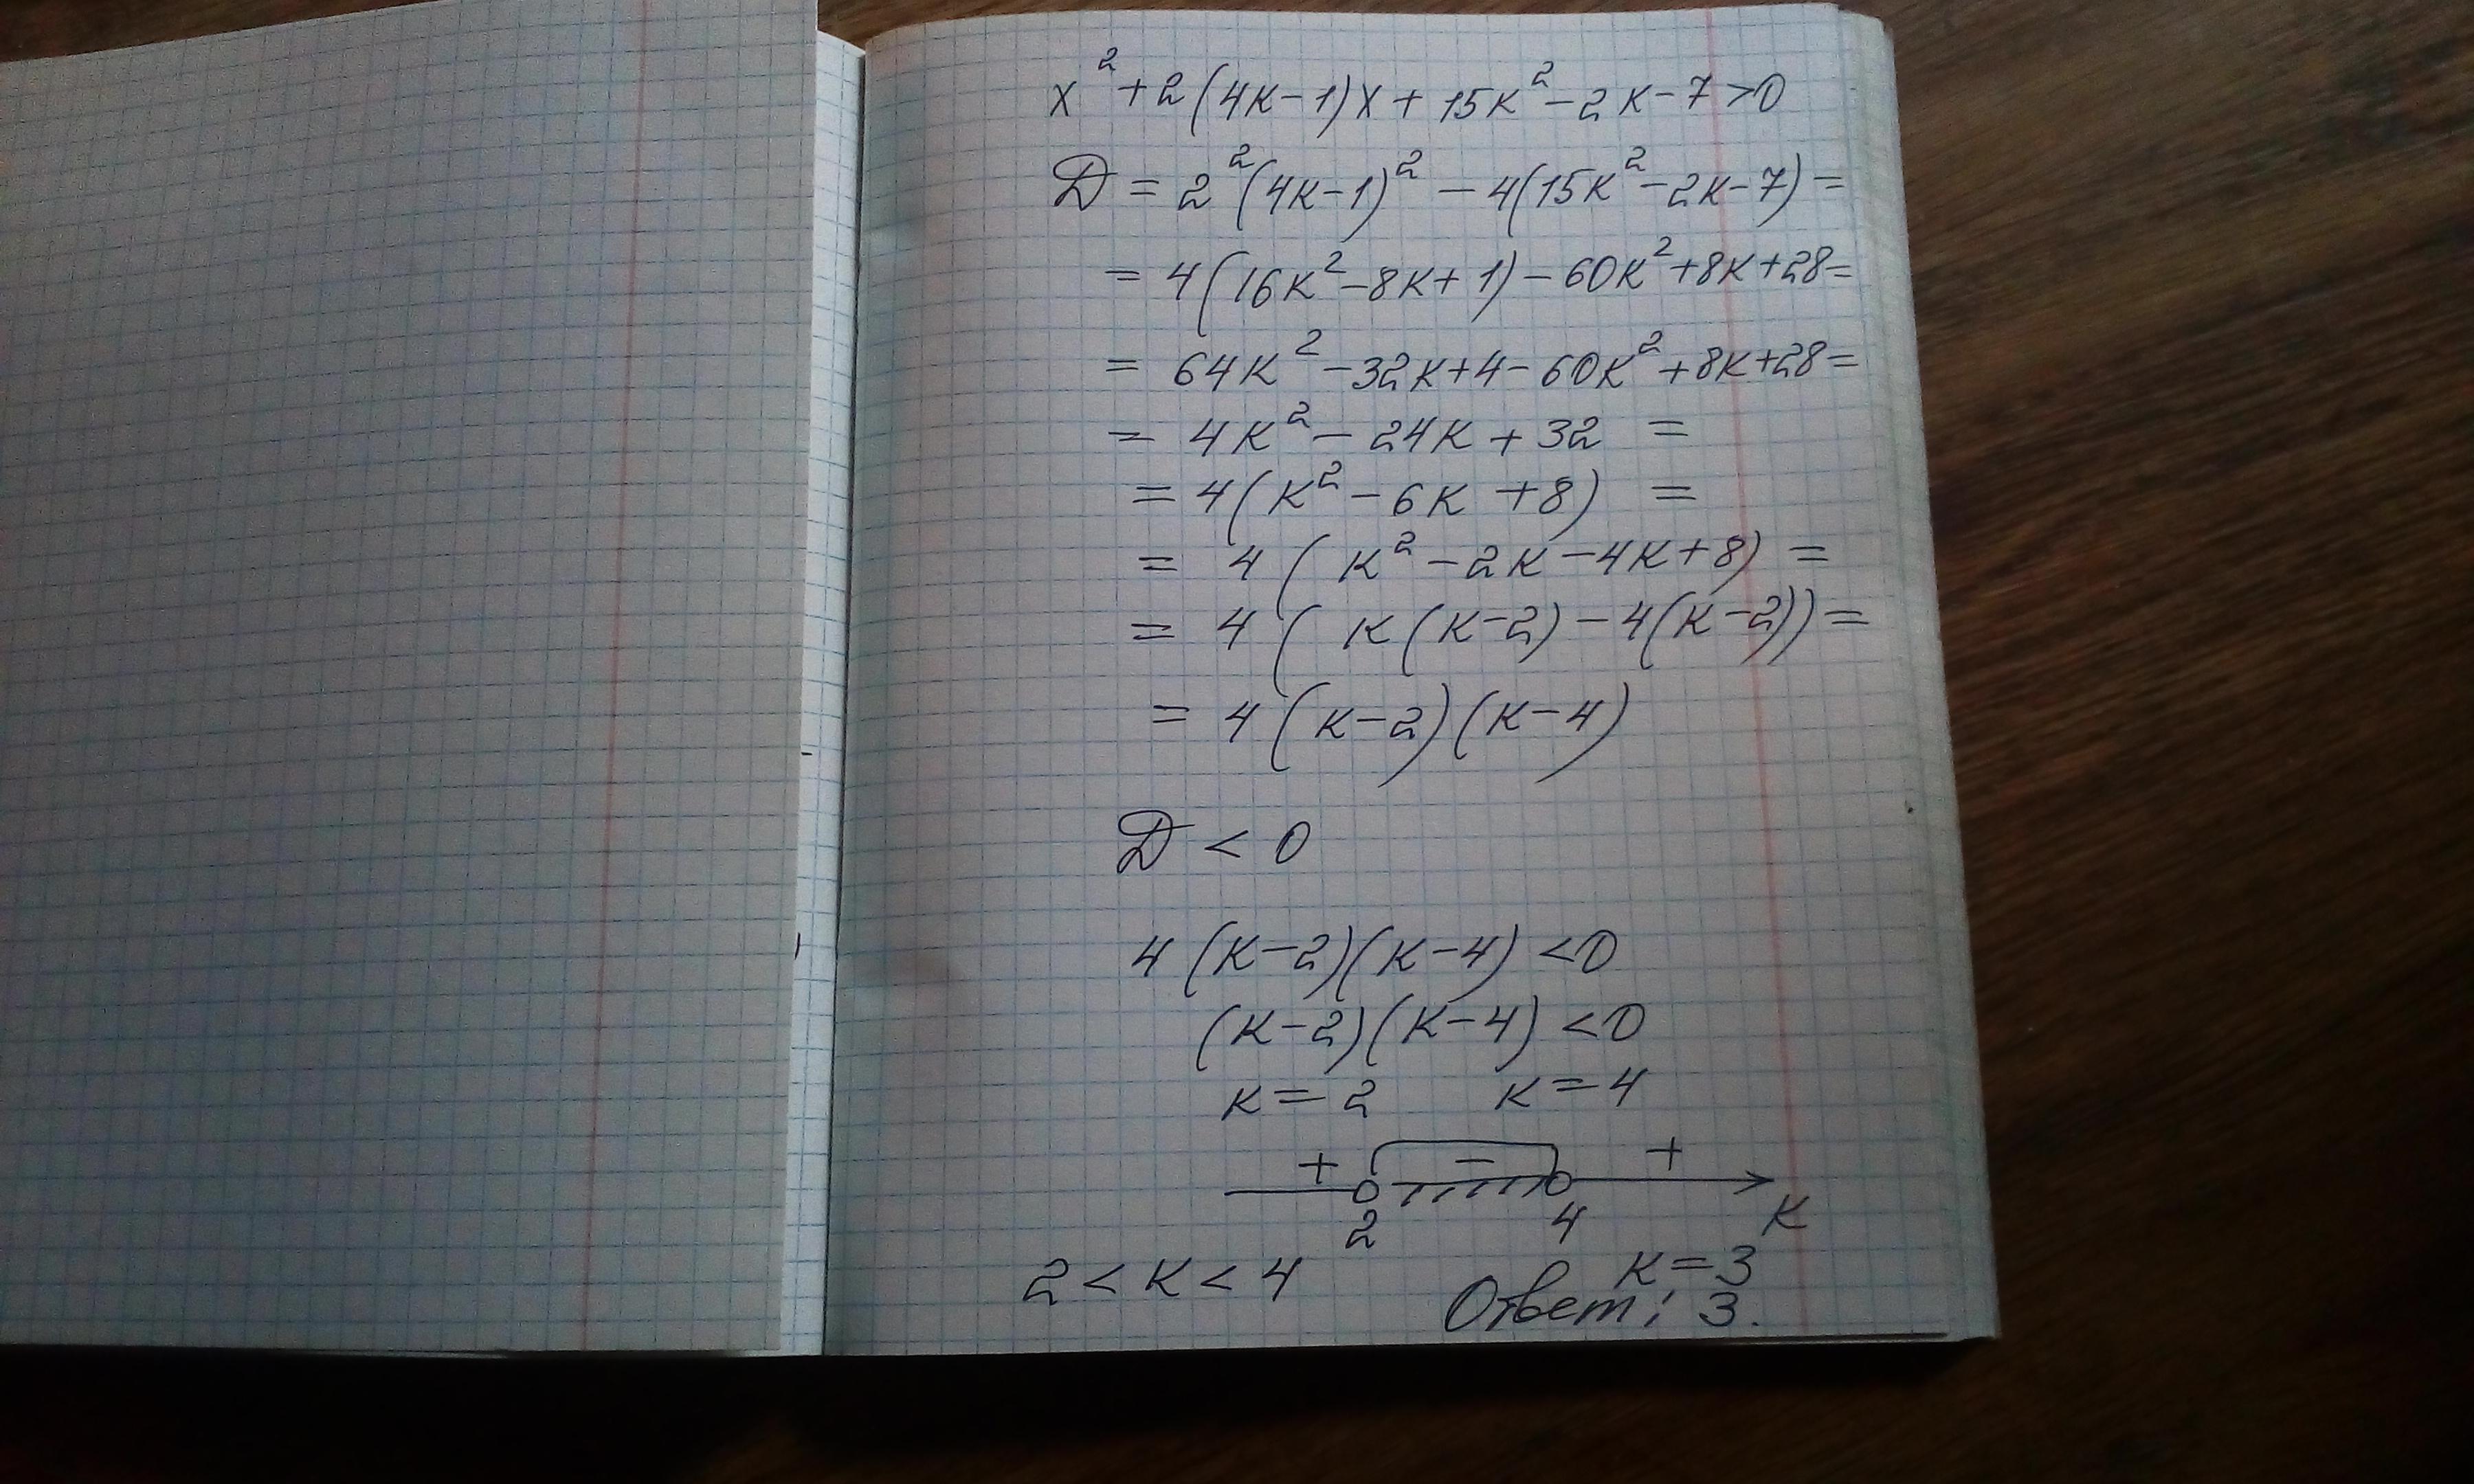 x² + 2(4k-1)x + 15k² - 2k - 7 > 0
D = 2²(4k-1)² - 4(15k² - 2k - 7) =
= 4(16k² - 8k + 1) - 60k² + 8k + 28 =
= 64k² - 32k + 4 - 60k² + 8k + 28 =
= 4k² - 24k + 32 =
= 4(k² - 6k + 8) =
= 4(k² - 2k - 4k + 8) =
= 4(k(k-2) - 4(k-2)) =
= 4(k-2)(k-4)
D < 0
4(k-2)(k-4) < 0
(k-2)(k-4) < 0
k = 2 k = 4
+ - +
2 4 k
2 < k < 4 k = 3
Ответ: 3.